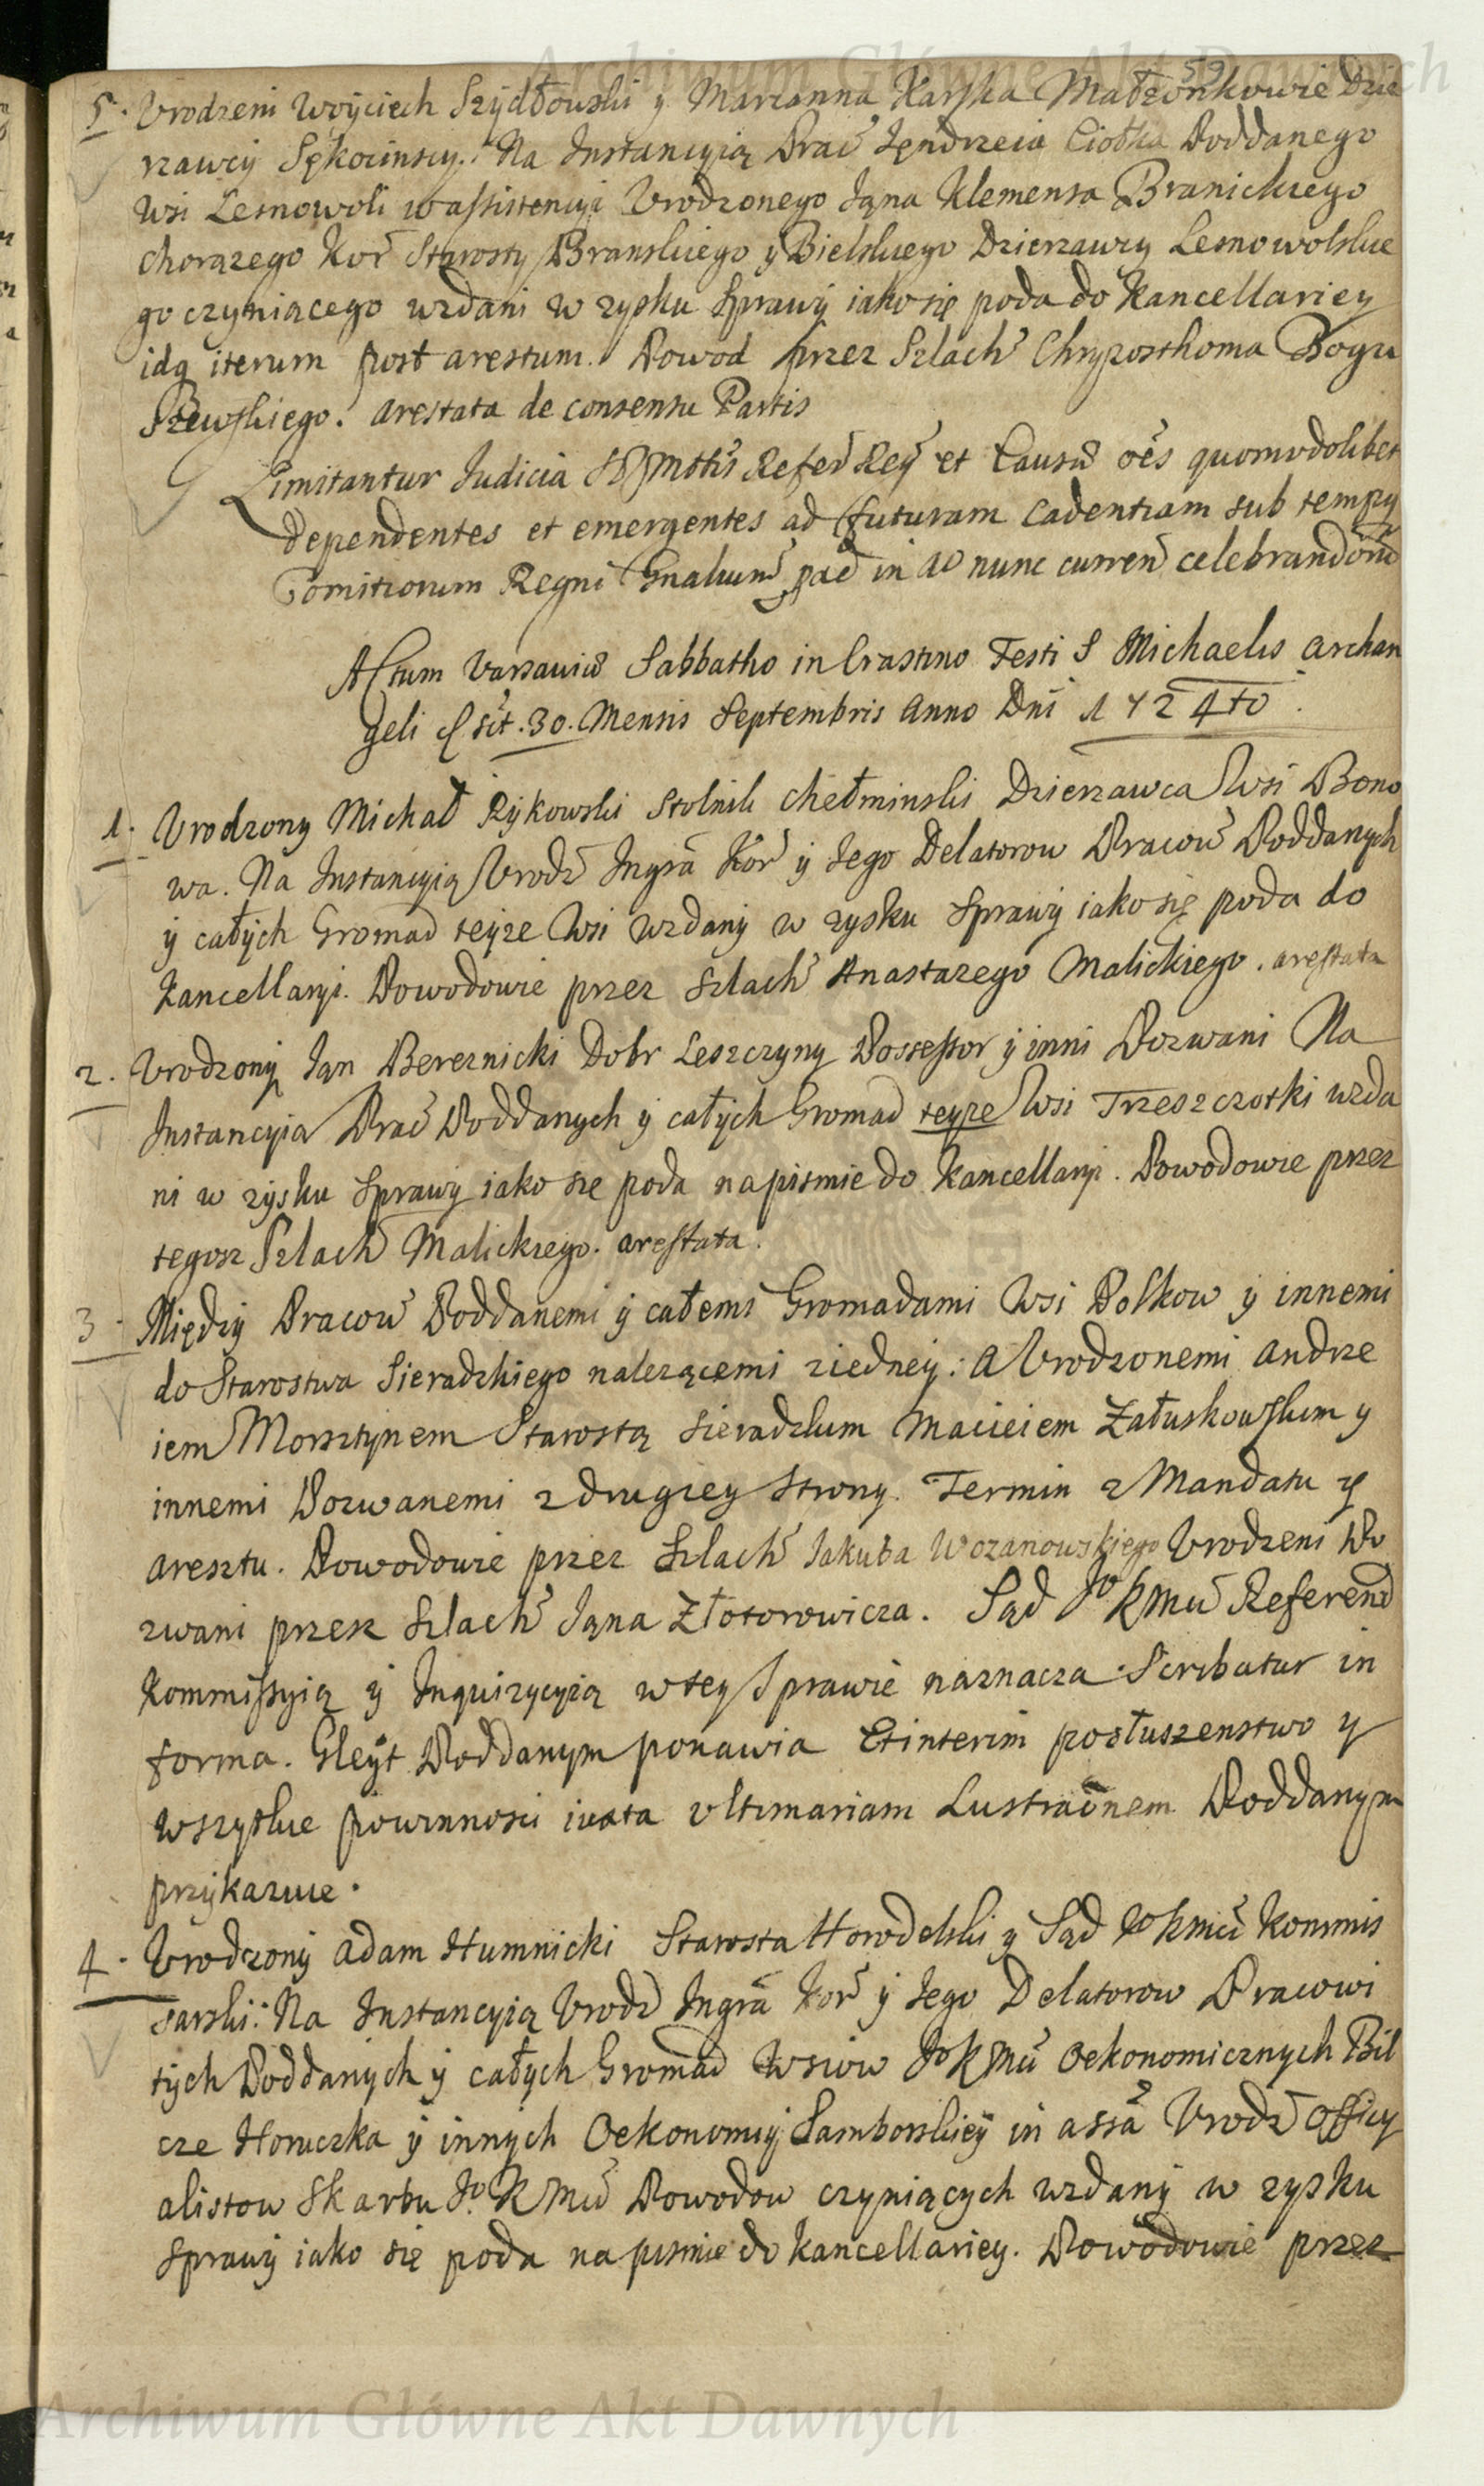 59
5. Urodzeni Woyciech Szydłowski y Marianna Karska Małzonkowie Dzie
rzawcy Sękocinscy. Na Instancyią Prac Jędrzeia Ciołka Poddanego
wsi Lesnowoli w assistencyi Urodzonego Jąna Klemensa Branickiego
chorązego Kor Starosty Branskiego y Bielskiego Dzierzawcy Lesnowolskie
go czyniącego wzdani w zysku sprawy iako się poda do Kancellariey
idą iterum post arestum. Powod przez Szlach Chryzosthoma Bogu
szewskiego. arestata de consensu Partis
Limitantur Judicia SRMttis Refer Reg et Causæ oes quomodolibet
dependentes et emergentes ad futuram Cadentiam sub tempg
Comitiorum Regni Gnalium pad in Ao nunc curren celebrandorū
Actum Varsaviæ Sabbatho in Crastino Festi S Michaelis Archan
geli scit. 30. Mensis Septembris Anno Dni 1724to.
1. Urodzony Michał Rykowski Stolnik chełminski Dzierzawca Wsi Bono
wa. Na Instancyią Urodz Ingra Kor y Jego Delatorow Pracow Poddanych
y całych Gromad teyze Wsi wzdany w zysku sprawy iako się poda do
Kancellaryi. Powodowie przez Szlach Anastazego Malickiego. arestata
2. Urodzony Jąn Bereznicki Dobr Leszczyny Possessor y inni Pozwani Na
Instancyia Prac Poddanych y całych Gromad teyze Wsi Trzeszczotki wzda
ni w zysku sprawy iako sie poda na pismie do Kancellaryi. Powodowie przez
tegosz Szlach Malickiego. arestata.
3. Między Pracow Poddanemi y całemi Gromadami Wsi Polkow y innemi
do Starostwa Sieradzkiego nalezącemi z iedney: A Urodzonemi Andrze
iem Morsztynem Starostą Sieradzkim Macieiem Załuskowskim y
innemi Pozwanemi z drugiey strony. Termin z Mandatu y
aresztu. Powodowie przez Szlach Jakuba Wozanowskiego Urodzeni Po
zwani przez Szlach Jąna Złotorowicza. Sąd Jo Kmci Referend
Kommissyią y Inquizycyią w tey Sprawie naznacza. Scribatur in
forma. Gleyt Poddanym ponawia Et interim posłuszenstwo y
wszytkie powinnosci iuxta ultimariam Lustraōnem Poddanym
przykazuie.
4. Urodzony Adam Humnicki Starosta Horodelski y Sąd Jo Kmci Kommis
sarski: Na Instancyią Urodz Ingra Kor y Jego Delatorow Pracowi
tych Poddanych y całych Gromad Wsiow Jo K Mci Oekonomicznych Bil
cze Horuczka y innych Oekonomiy Samborskiey in assa Urodz Officy
alistow Skarbu Jo K Mci Powodow czyniących wzdany w zysku
sprawy iako się poda na pismie do Kancellariey. Powodowie przez
Archiwum Główne Akt Dawnych